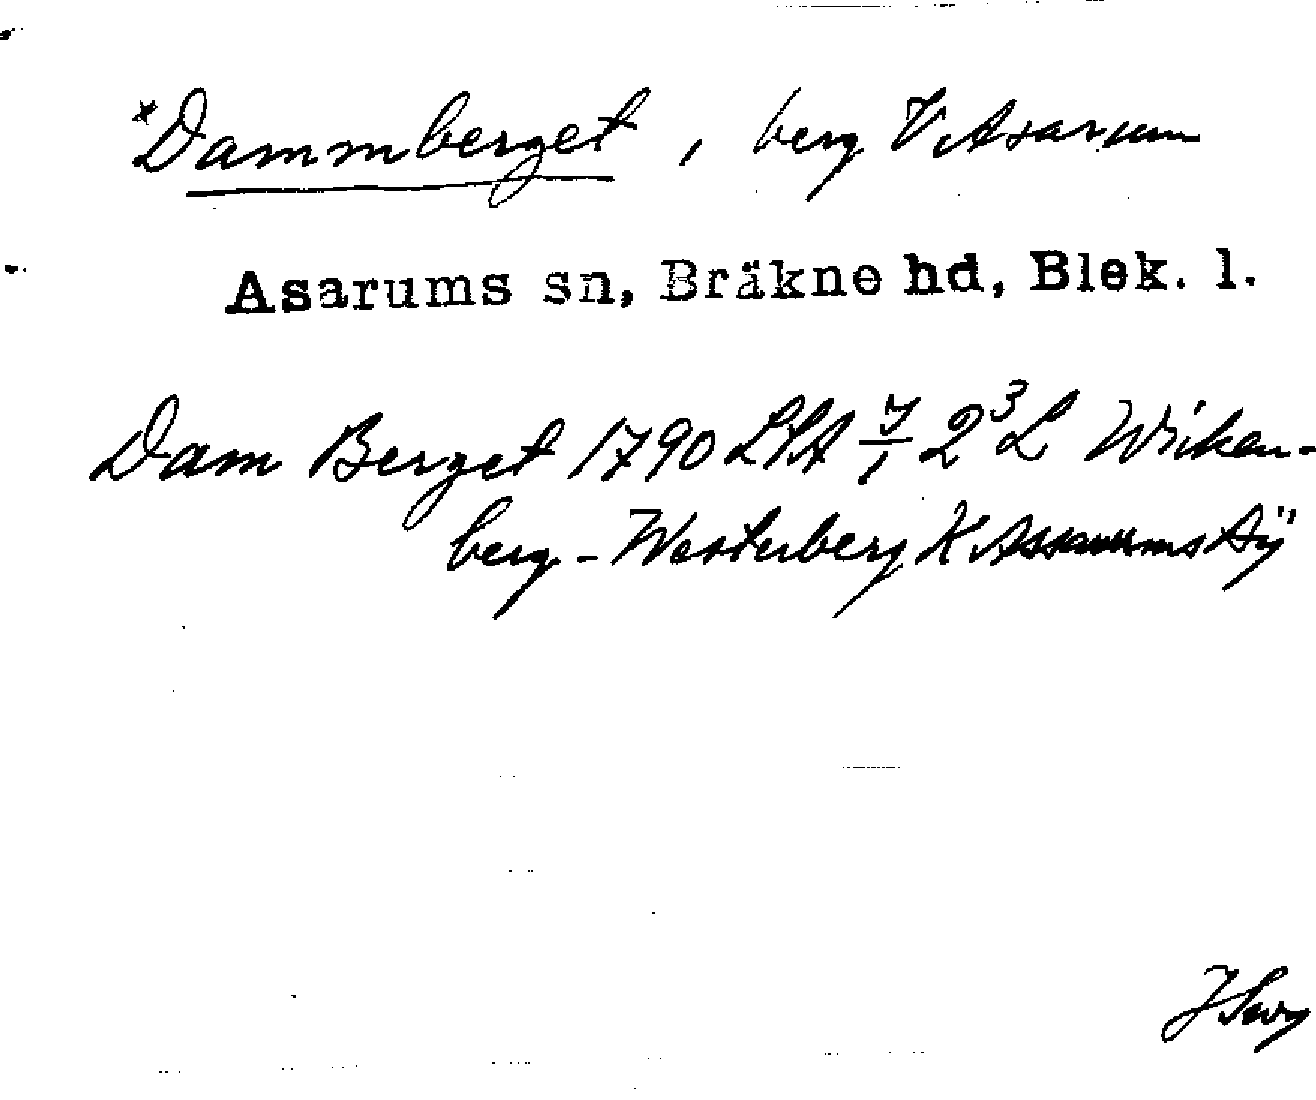 *Dammberget, berg V. Asarum
Asarums sn, Bräkne hd, Blek. l.
Dam Berget 1790 LSA 2³ L Wiken-
berg - Westerberg K Assarums Äÿ